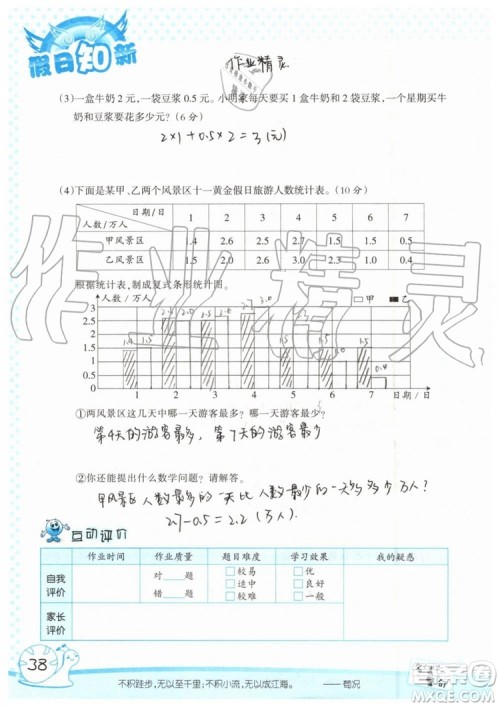 假日知新
作业精灵
(3)一盒牛奶 2 元,一袋豆浆 0.5 元。小明家每天要买 1 盒牛奶和 2 袋豆浆,一个星期买牛
奶和豆浆要花多少元?(6 分)
2×1+0.5×2=3(元)
(4)下面是某甲、乙两个风景区十一黄金假日旅游人数统计表。(10 分)
日期/日 1 2 3 4 5 6 7
人数/万人
甲风景区 1.4 2.6 2.5 2.7 2.0 1.0 0.5
乙风景区 1.5 2.0 2.7 3.0 2.3 1.5 0.4
根据统计表,制成复式条形统计图。
人数/万人 甲 乙
3
2.5
2
1.5
1
0.5
0
1 2 3 4 5 6 7 日期/日
①两风景区这几天中哪一天游客最多?哪一天游客最少?
第4天的游客最多,第7天的游客最少
②你还能提出什么数学问题?请解答。
甲风景区人数最多的一天比人数最少的一天多多少万人?
2.7-0.5=2.2(万人)
互动评价
作业时间 作业质量 题目难度 学习效果 我的疑惑
自我评价 对 题 错 题 □较易 □适中 □较难 □优 □良好 □一般
家长评价
38
不积跬步,无以至千里;不积小流,无以成江海。 ——荀况
作业精灵